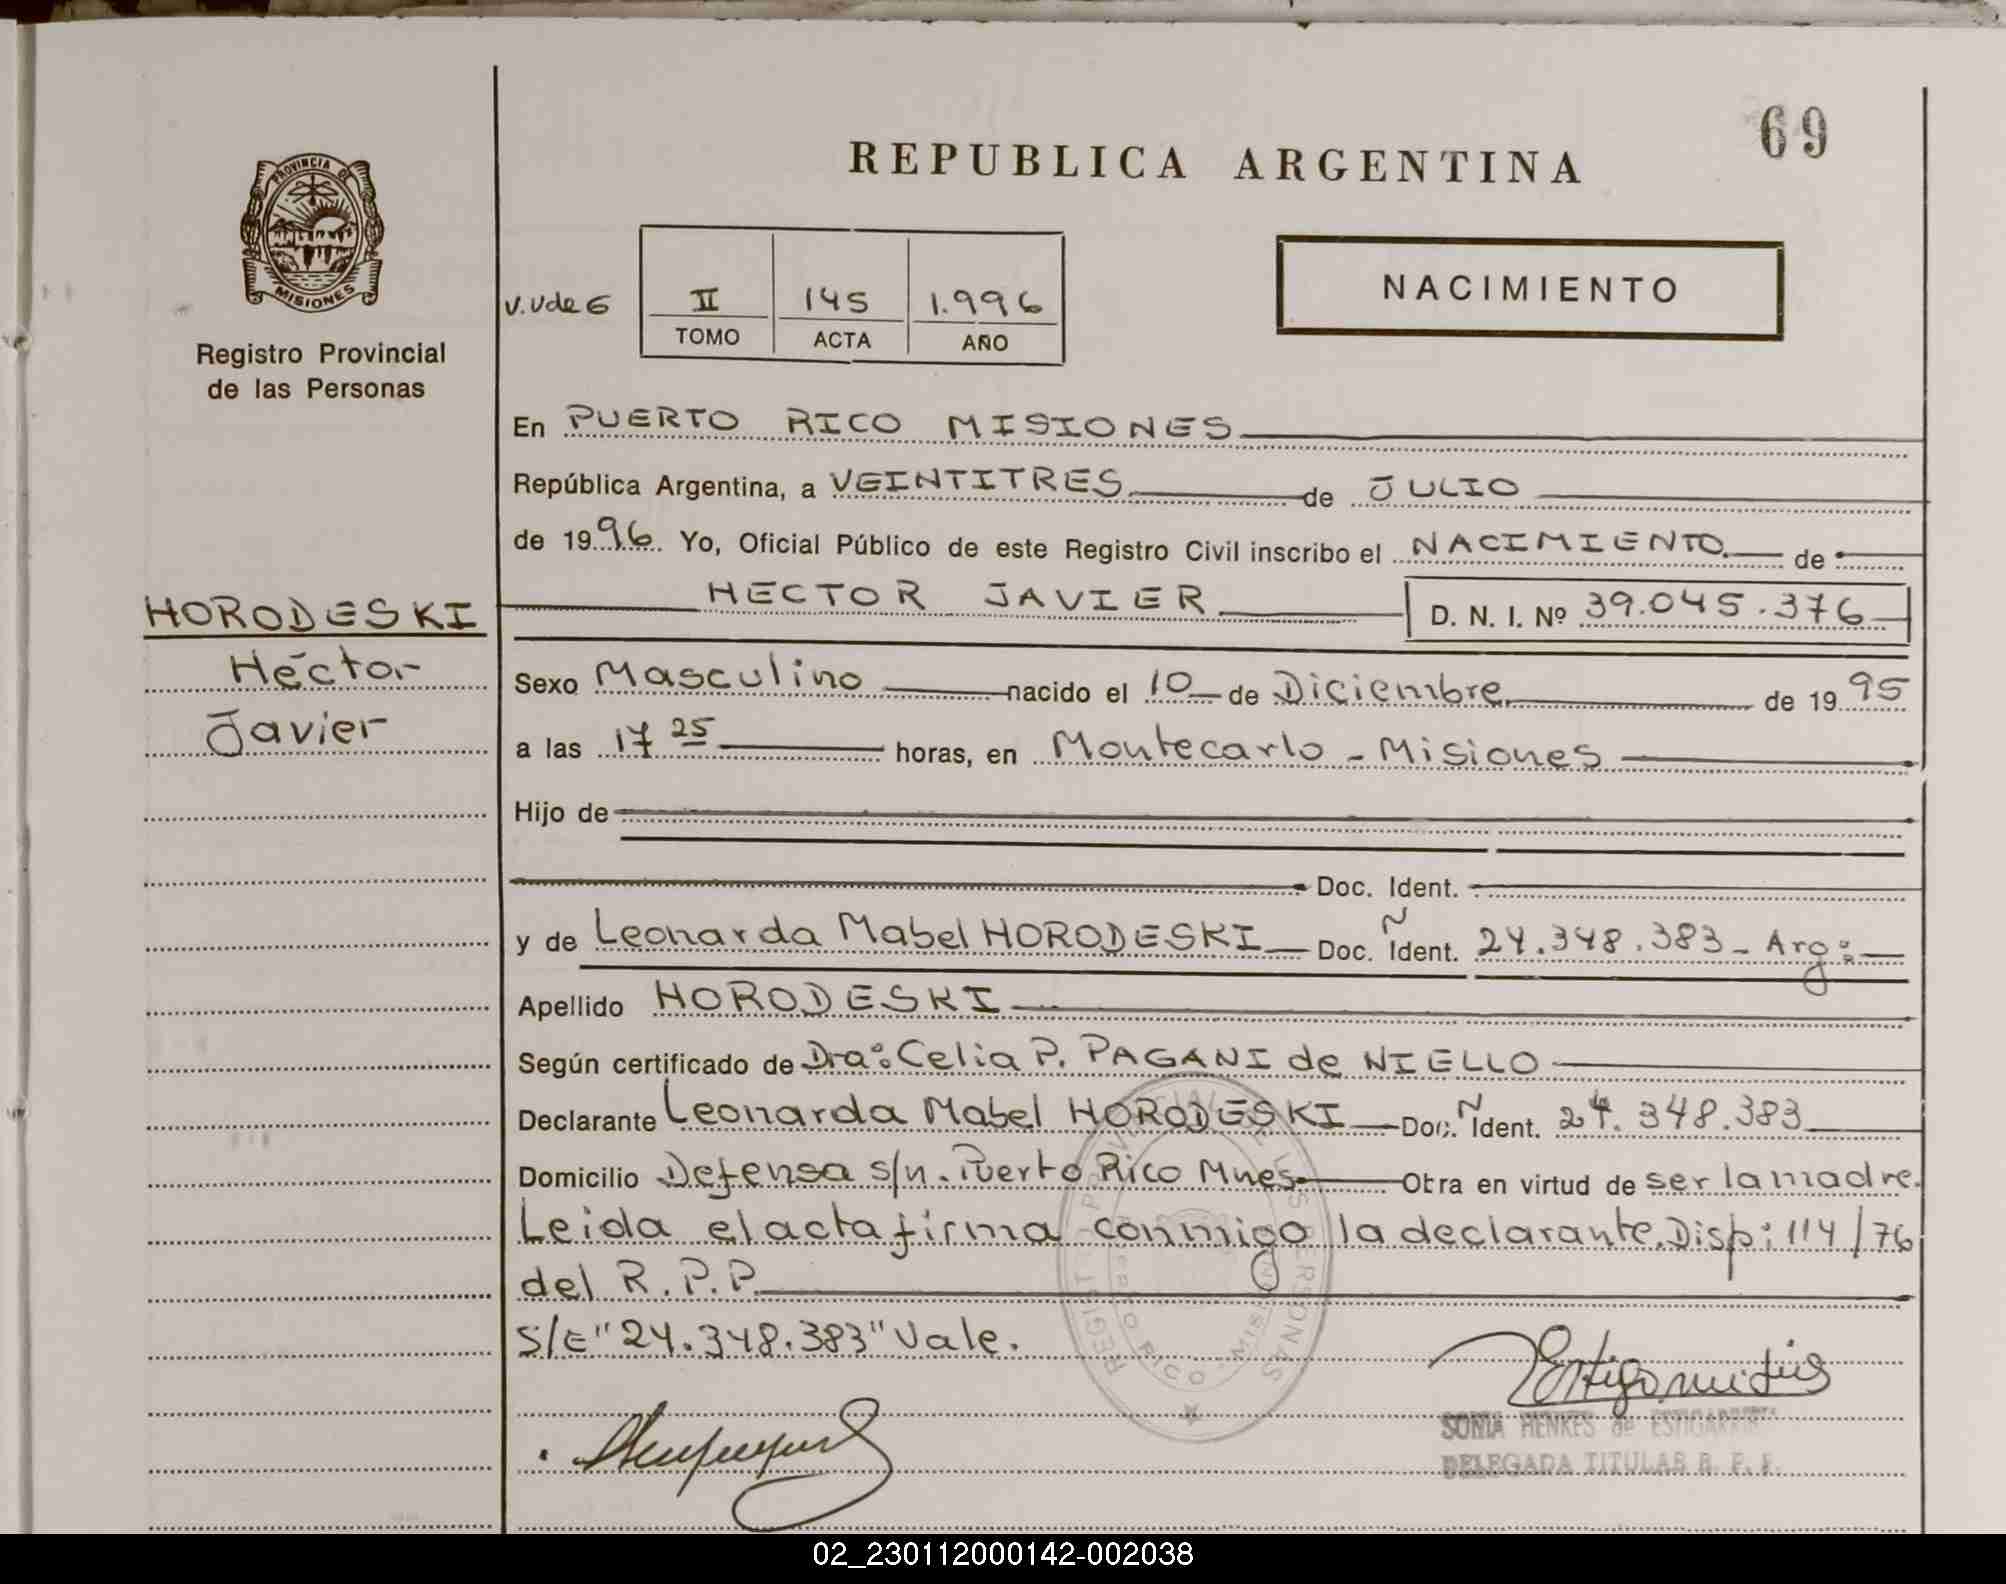 69
REPUBLICA ARGENTINA
PROVINCIA DE
MISIONES
Registro Provincial
de las Personas
V. Vde 6
II 145 1.996
TOMO ACTA AÑO
NACIMIENTO
En PUERTO RICO MISIONES
República Argentina, a VEINTITRES de JULIO
de 1996 Yo, Oficial Público de este Registro Civil inscribo el NACIMIENTO de
HECTOR JAVIER D. N. I. Nº 39.045.376
HORODESKI
Héctor
Javier
Sexo Masculino nacido el 10 de Diciembre de 1995
a las 17 25 horas, en Montecarlo - Misiones
Hijo de
Doc. Ident.
y de Leonarda Mabel HORODESKI Doc. Ident. 24.348.383 - Arg:
Apellido HORODESKI
Según certificado de Dra: Celia P. PAGANI de NIELLO
Declarante Leonarda Mabel HORODESKI Doc. Ident. 24.348.383
Domicilio Defensa s/n. Puerto Rico Mnes. Otra en virtud de ser la madre.
Leida el acta firma conmigo la declarante. Disp: 114/76
del R.P.P.
S/E "24.348.383" Vale.
SONIA HENKES de
DELEGADA TITULAR R. P. P.
02_230112000142-002038